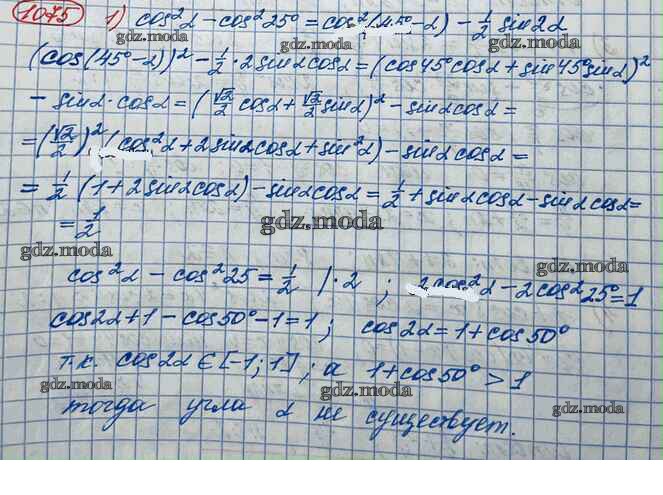 1075 1) cos²α - cos²25° = cos²(45°-α) - 1/2 sin2α
gdz.moda
gdz.moda
(cos(45°-α))² - 1/2 · 2sinα cosα = (cos45°cosα + sin45°sinα)²
gdz.moda
- sinα · cosα = (√2/2 cosα + √2/2 sinα)² - sinα cosα =
gdz.moda
= (√2/2)² (cos²α + 2sinα cosα + sin²α) - sinα cosα =
gdz.moda
gdz.moda
= 1/2 (1 + 2sinα cosα) - sinα cosα = 1/2 + sinα cosα - sinα cosα =
= 1/2
gdz.moda
gdz.moda
gdz.moda
cos²α - cos²25 = 1/2 | · 2 ; 2cos²α - 2cos²25° = 1
gdz.moda
cos2α + 1 - cos50° - 1 = 1 ; cos2α = 1 + cos50°
gdz.moda
т.к. cos2α ∈ [-1; 1] ; а 1 + cos50° > 1
gdz.moda
gdz.moda
тогда угла α не существует.
gdz.moda
gdz.moda